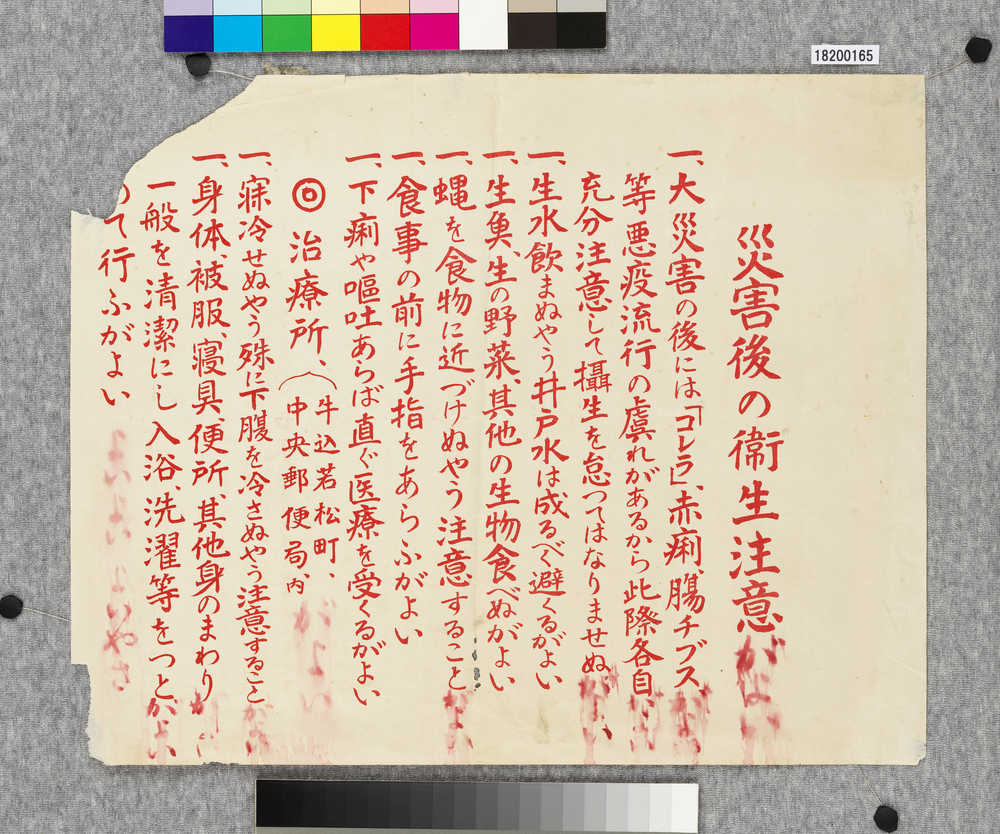 18200165
災害後の衛生注意
一、大災害の後には「コレラ」、赤痢、腸チブス
等悪疫流行の虞れがあるから此際各自
充分注意して攝生を怠つてはなりませぬ
一、生水飲まぬやう井戸水は成るべく避くるがよい
一、生魚、生の野菜、其他の生物食べぬがよい
一、蝿を食物に近づけぬやう注意すること
一、食事の前に手指をあらふがよい
一、下痢や嘔吐あらば直ぐ医療を受くるがよい
◎治療所、
牛込若松町、
中央郵便局、内
一、寐冷せぬやう殊に下腹を冷さぬやう注意すること
一、身体、被服、寝具、便所、其他身のまわり
一般を清潔にし入浴、洗濯等をつと
て行ふがよい